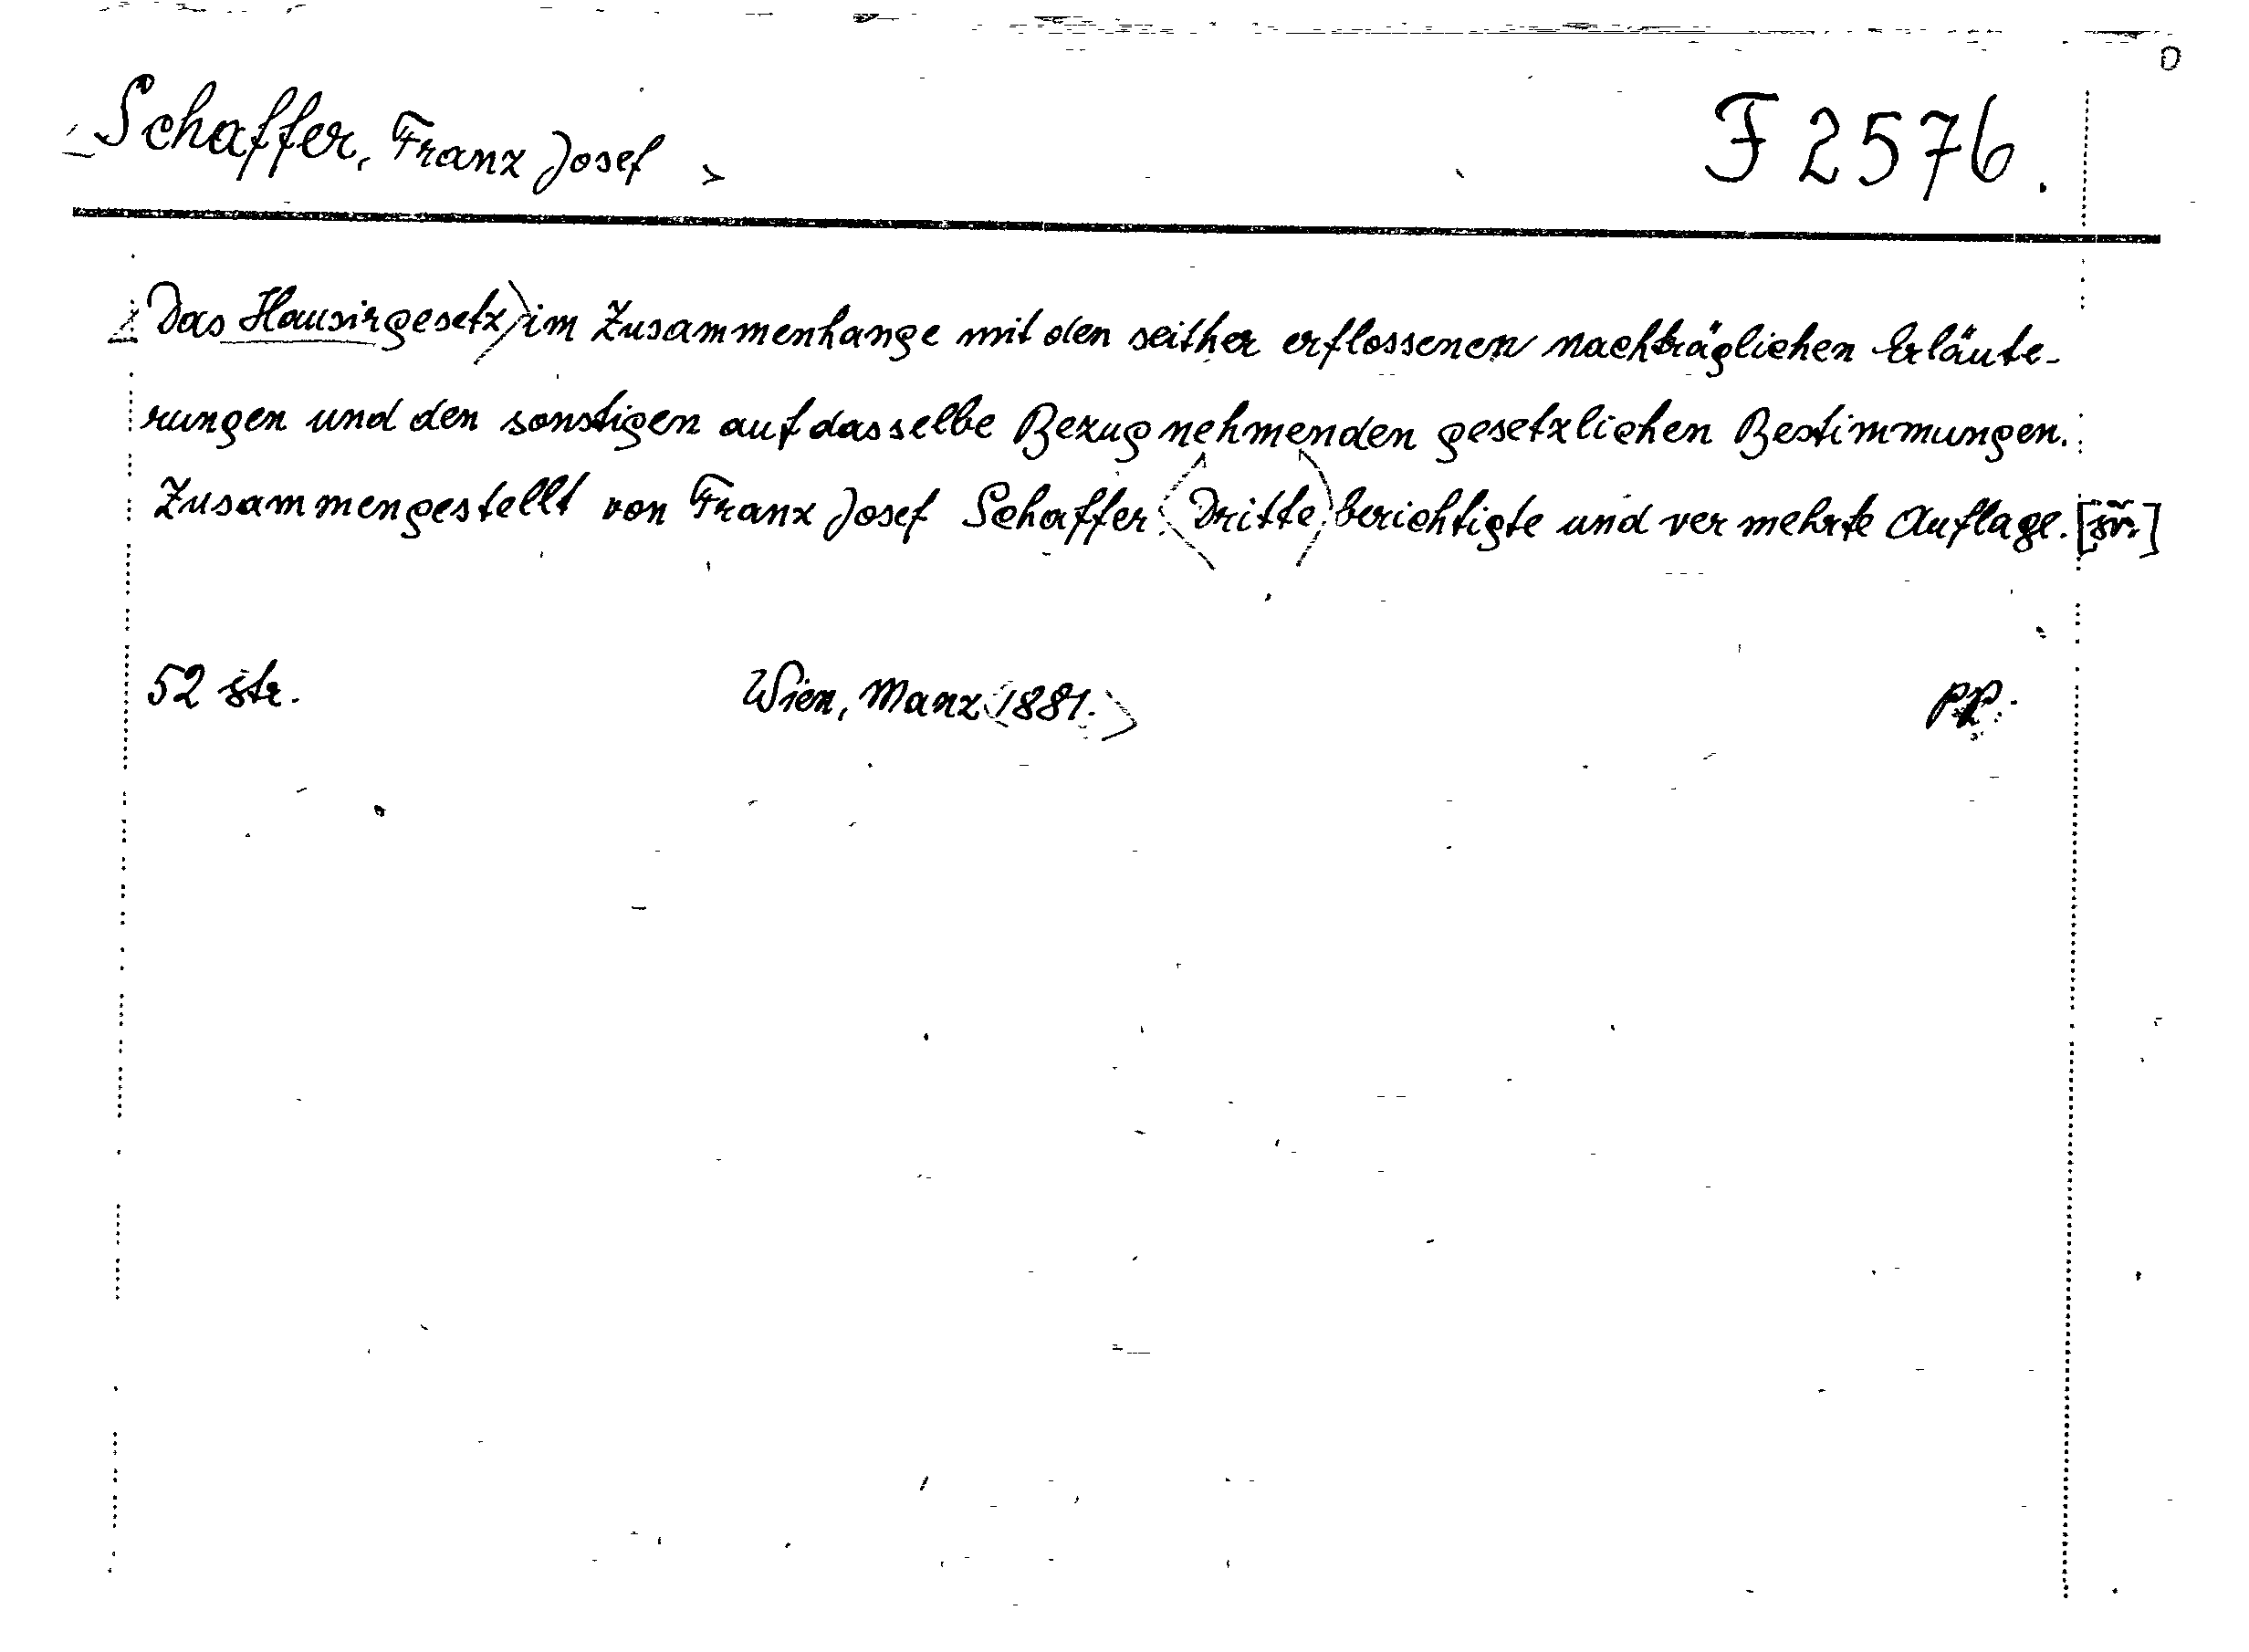 Schaffer, Franz Josef
F 2576.
Das Hausirgesetz im Zusammenhange mit den seither erflossenen nachträglichen Erläute-
rungen und den sonstigen auf dasselbe Bezug nehmenden gesetzlichen Bestimmungen.
Zusammengestellt von Franz Josef Schaffer. Dritte, berichtigte und vermehrte Auflage.
52 str. Wien, Manz 1881. PP.